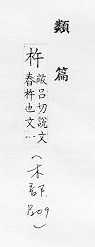 類篇
杵
敞呂切說文
舂杵也文一
(木部.809)